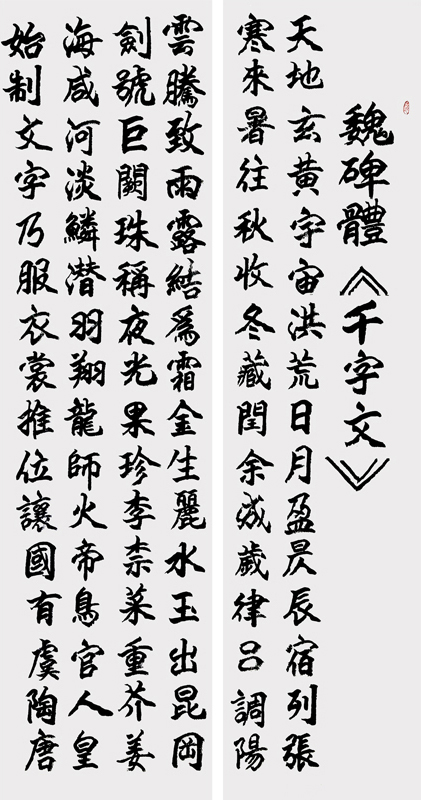 魏碑體《千字文》
天地玄黃宇宙洪荒日月盈昃辰宿列張
寒來暑往秋收冬藏閏余成歲律呂調陽
雲騰致雨露結爲霜金生麗水玉出昆岡
劍號巨闕珠稱夜光果珍李柰菜重芥姜
海咸河淡鱗潜羽翔龍師火帝鳥官人皇
始制文字乃服衣裳推位讓國有虞陶唐